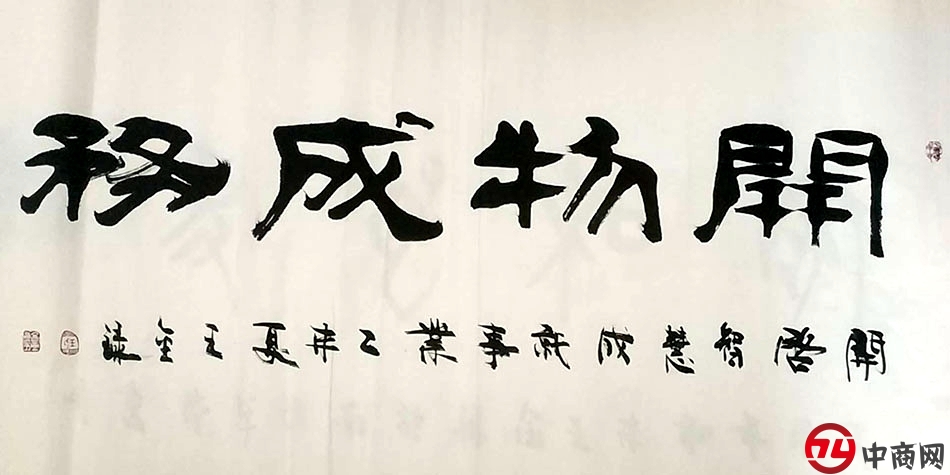 開物成務
開啓智慧成就事業乙未夏王金
中商网